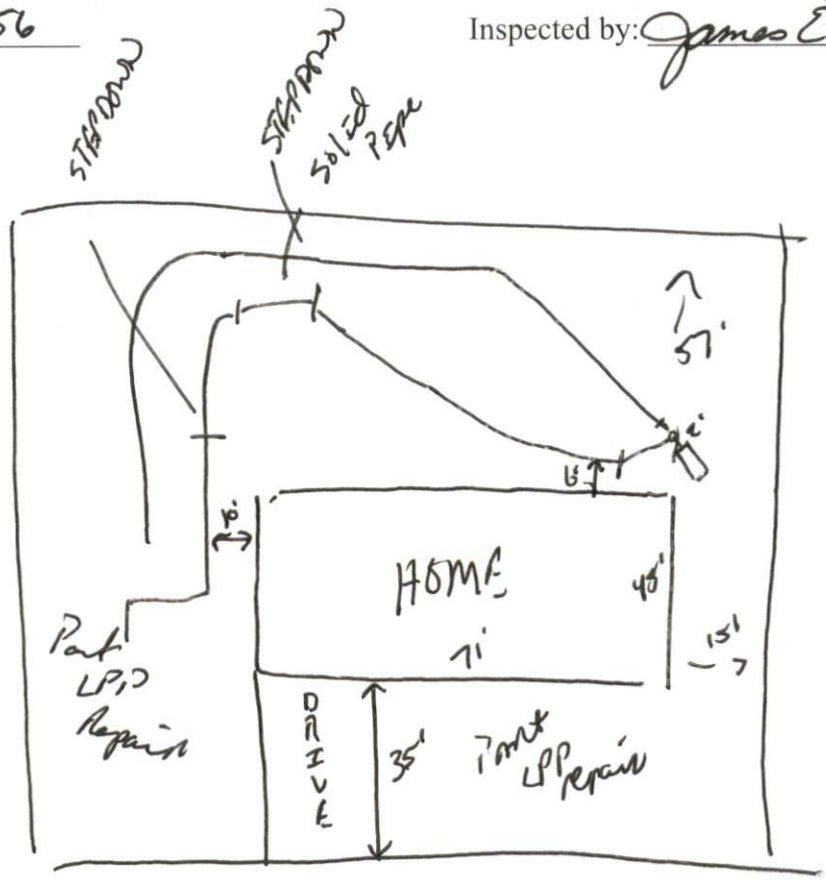 56
Inspected by: James E
STEPDOWN
STEPDOWN
Solid
Pipe
57'
6'
10'
HOME
45'
71'
15'
Part
LPP
Repair
DRIVE
35'
Part
LPP
repair